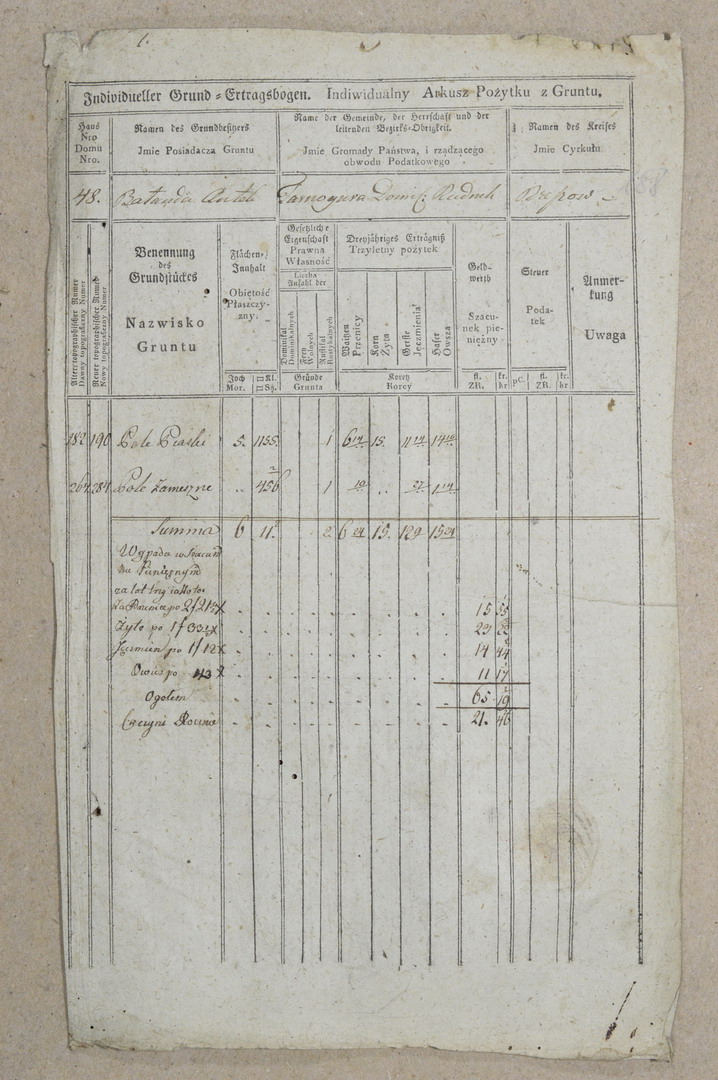 1.
Individueller Grund-Ertragsbogen. Indiwidualny Arkusz Pożytku z Gruntu.
Haus Nro Domu Nro.
Namen des Grundbesitzers
Jmie Posiadacza Gruntu
Name der Gemeinde, der Herrschaft und der
leitenden Bezirks-Obrigkeit.
Jmie Gromady Państwa, i rządzącego
obwodu Podatkowego
Namen des Kreises
Jmie Cyrkułu
48. Bałanda Antek Tarnogura Domin: Rudnik
Alter topographischer Numer
Dawny topograficzny Numer
Neuer topographischer Numer
Nowy topograficzny Numer
Benennung
des
Grundstückes
Nazwisko
Gruntu
Flächen-
Innhalt
Obiętość
Płaszczyzny.
Joch Mor.
□ Kl. □ Są.
Gesetzliche
Eigenschaft
Prawna
Własność
Liczba
Anzahl der
Dominikal
Dominikalnych
Frey
Wolnych
Rustikal
Rustykalnych
Gründe
Grunta
Dreyjähriges Erträgniß
Trzyletny pożytek
Waitzen
Przenicy
Korn
Zyta
Gerste
Jęczmienia
Haser
Owsza
Koretz
Korcy
Geld-
werth
Szacunek
pieniężny
fl. ZR.
kr. kr
Steuer
Podatek
PC.
fl. ZR.
kr. kr
Anmerkung
Uwaga
182 190 Pole Piaski 5. 1155. 1 15.
264 284 Pole Zameszne .. 456 1
Summa 6 11. 2. 15.
Wypada w Szacunku
na Pieniężnym
za lat trzy
za Pszenice po 2f 21x 15 35
Zyto po 1f 33x 23
Jęczmien po 1f 12x 14 44
Owies po 43x 11 17
Ogołem 65. 19
Czyni Rocznie 21. 46